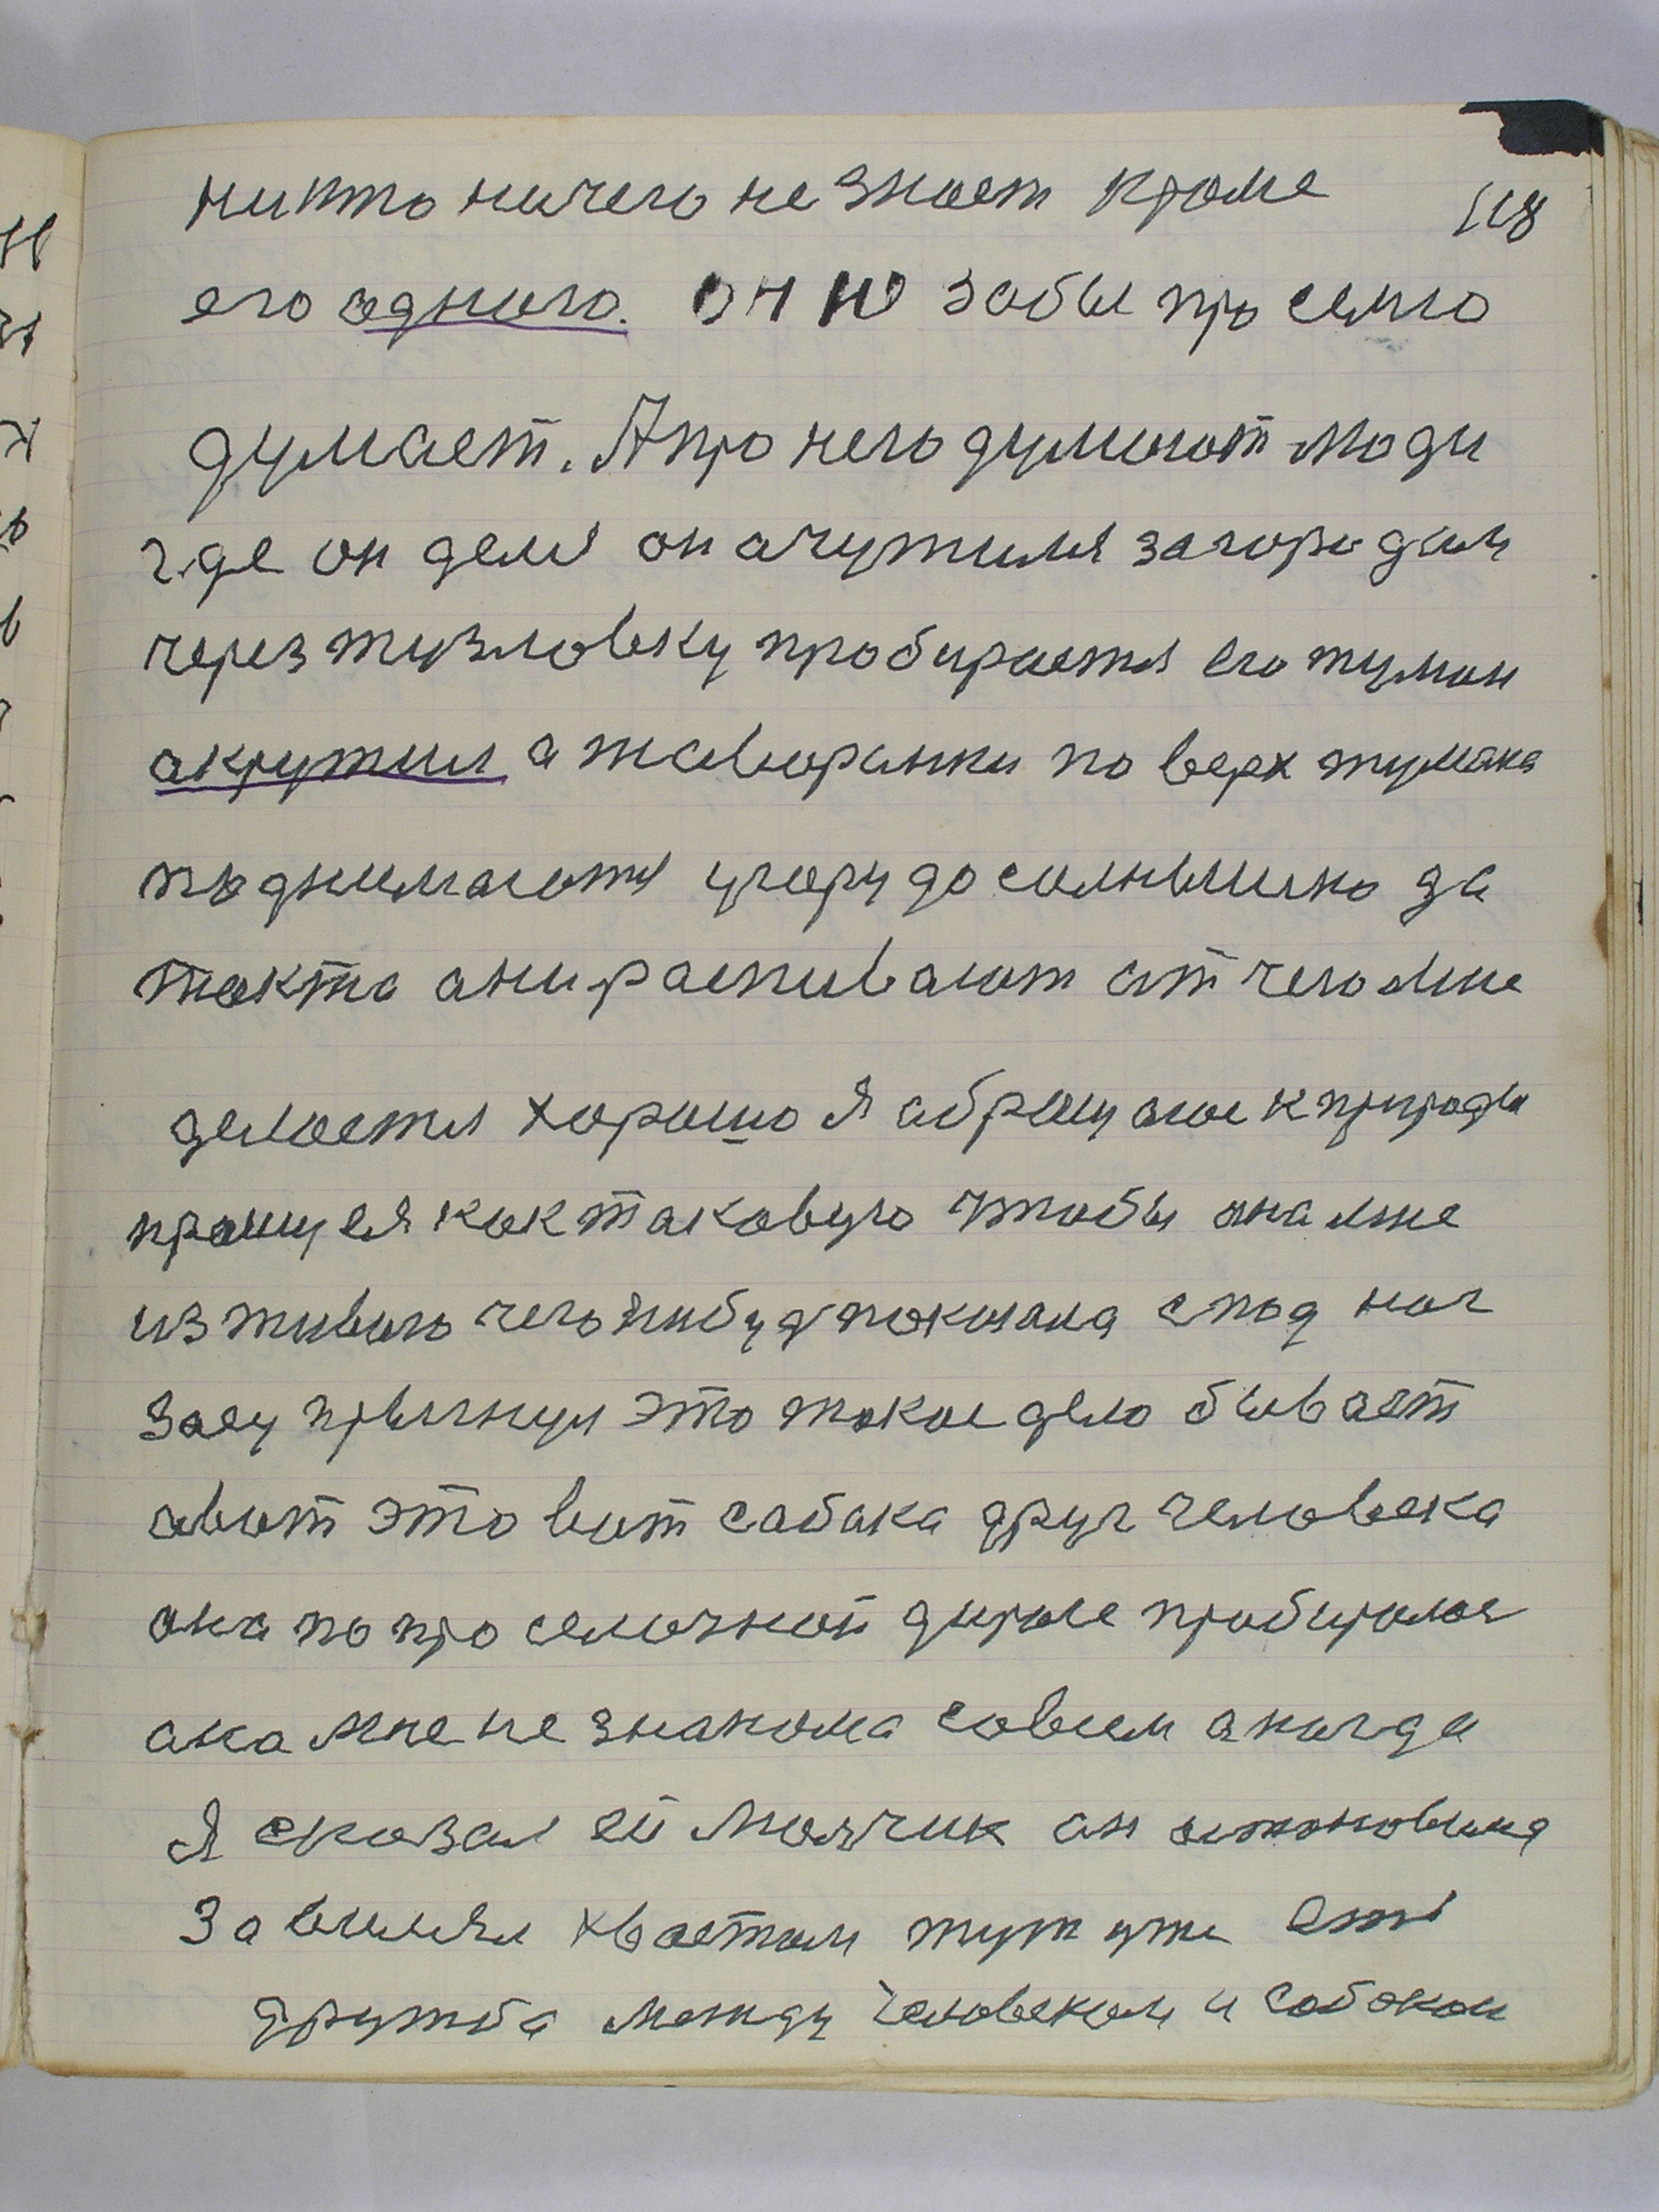 никто ничего не знает кроме 118
его одного. он ни забы про семю
думает. А про него думают люди
где он делс он ачутился загорадили
через тузловку пробирается его туман
акрутил а жаворанки по верх тумана
поднимаются угору до солнышко за
такта ани распивают от чего мне
делается хорошо Я абращаюс к природи
прошу ея как таковую чтобы она мне
из живого чего нибуд показала спод ног
заец прыгнул это такое дело бывает
авот это вот сабака друг человека
она по про селочной дироге пробиралас
ана мне не знакома совсем а когда
Я сказал ей Молчик он астановился
Завилял хвастом тут уже ест
дружба между человеком и собакой